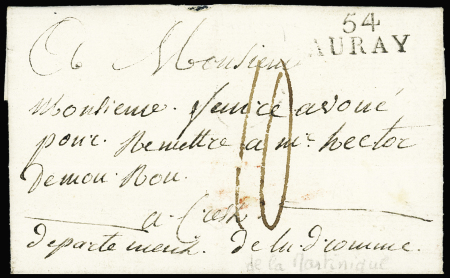 54
AURAY
A Monsieur
Monsieur. avoué
pour. Remettre a mr hector
Demon Rou.
10
a Crest.
departement. de la dromme.
de la Martinique